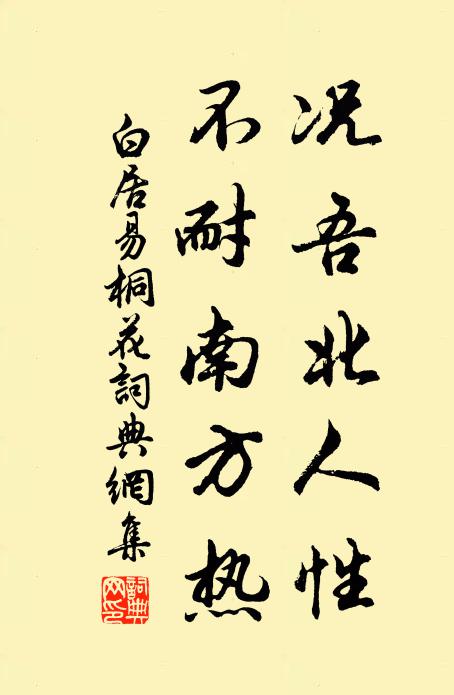 况吾北人性
不耐南方热
白居易桐花詞典網集
詞典網印